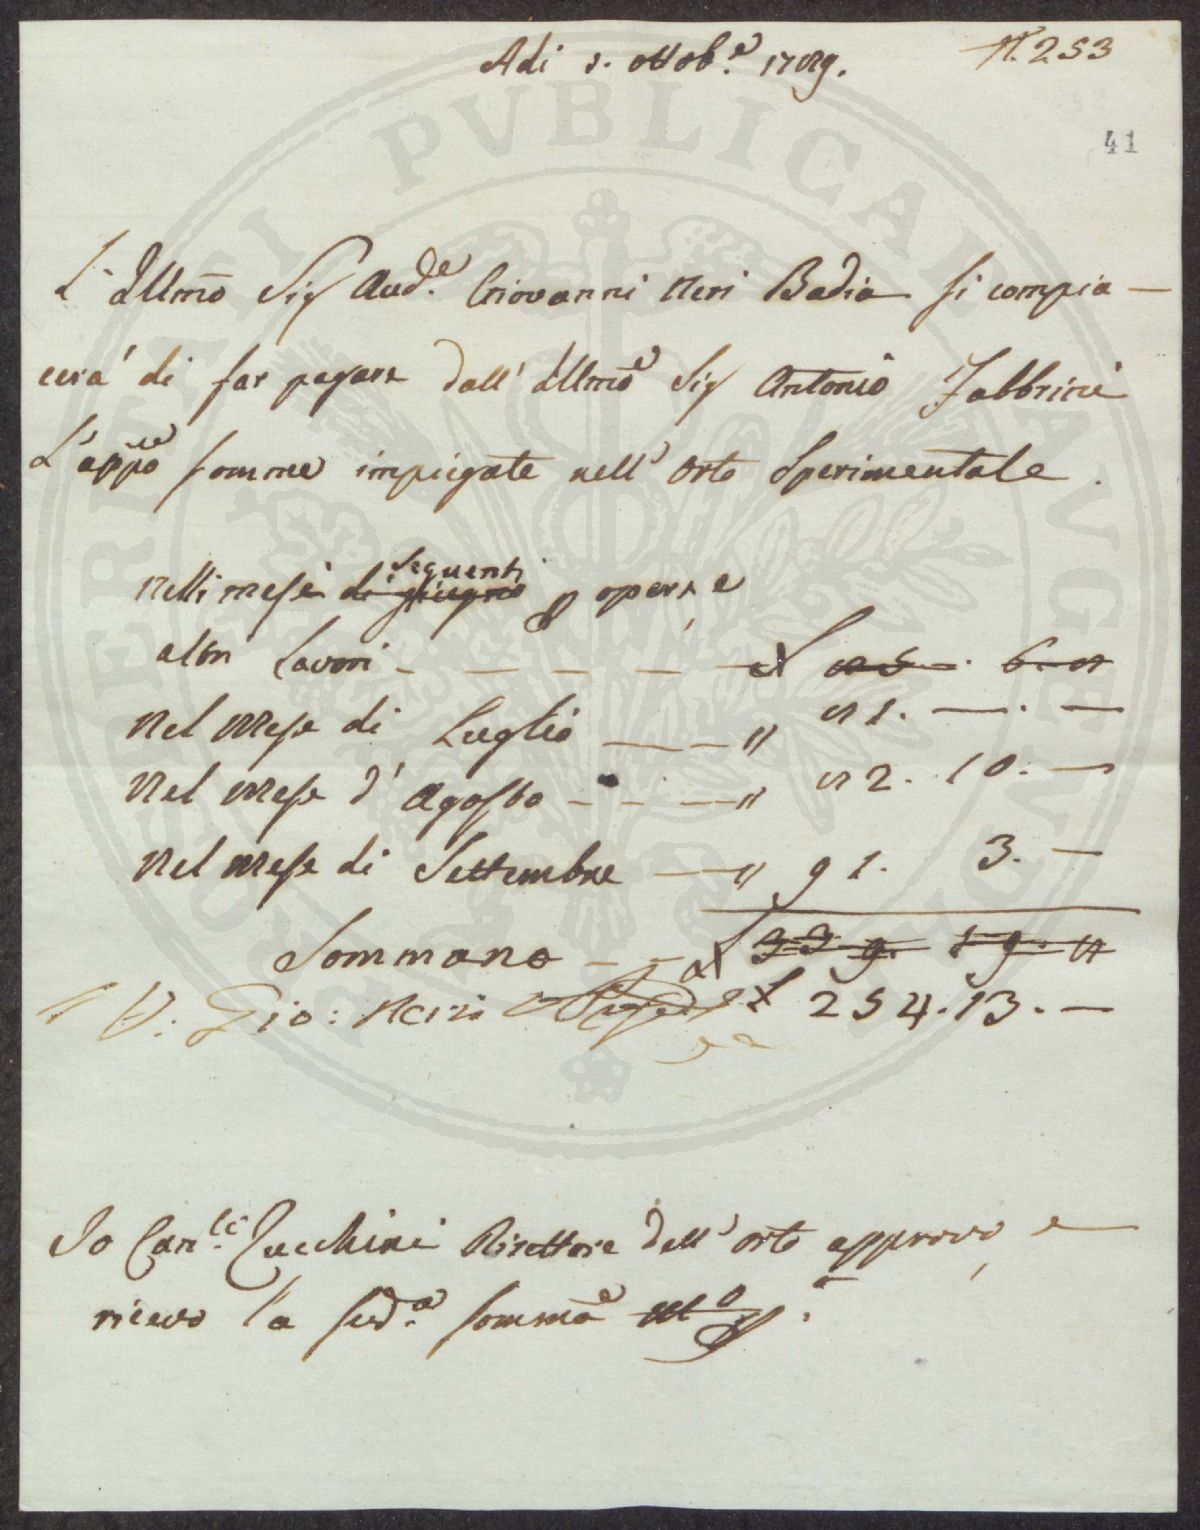 Adi 1. ottob.e 1789.
N. 253
41
L'Illmo Sig Aud.e Giovanni Neri Badia si compia-
cerà di far pagare dall' Illmo Sig Antonio Fabbrini
L'appo somme impiegate nell' Orto Sperimentale.
sequenti
nelli mesi di giugno p opere, e
altri Lavori - - - - - £ 85. 6. 8
Nel Mese di Luglio - - - " 81. — . —
Nel Mese d' Agosto - - - " 82. 10. —
Nel Mese di Settembre - " 91. 3. —
Sommano - - £ 339. 19. 8
V. Gio: Neri £ 254. 13. —
Io Can.co Zucchini Direttore dell' orto approvo, e
ricevo la sud.a somma
PROSPERITATI PVBLICAE AVGENDAE